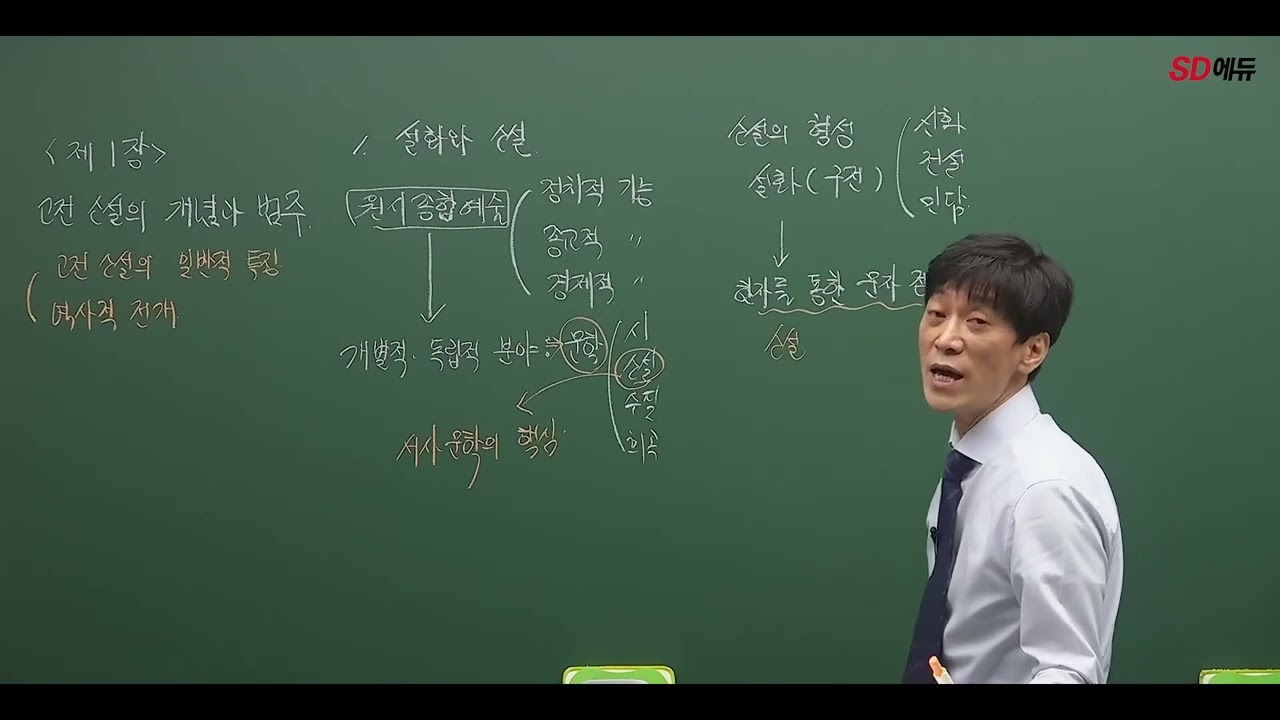 SD에듀
<제1장>
고전 소설의 개념과 범주.
고전 소설의 일반적 특징
역사적 전개
1. 설화와 소설.
원시종합예술
정치적 기능
종교적 〃
경제적 〃
개별적·독립적 분야:
문학
시
소설
수필
희곡
서사문학의 핵심.
소설의 형성
설화(구전)
신화
전설
민담.
한자를 통한 문자
소설